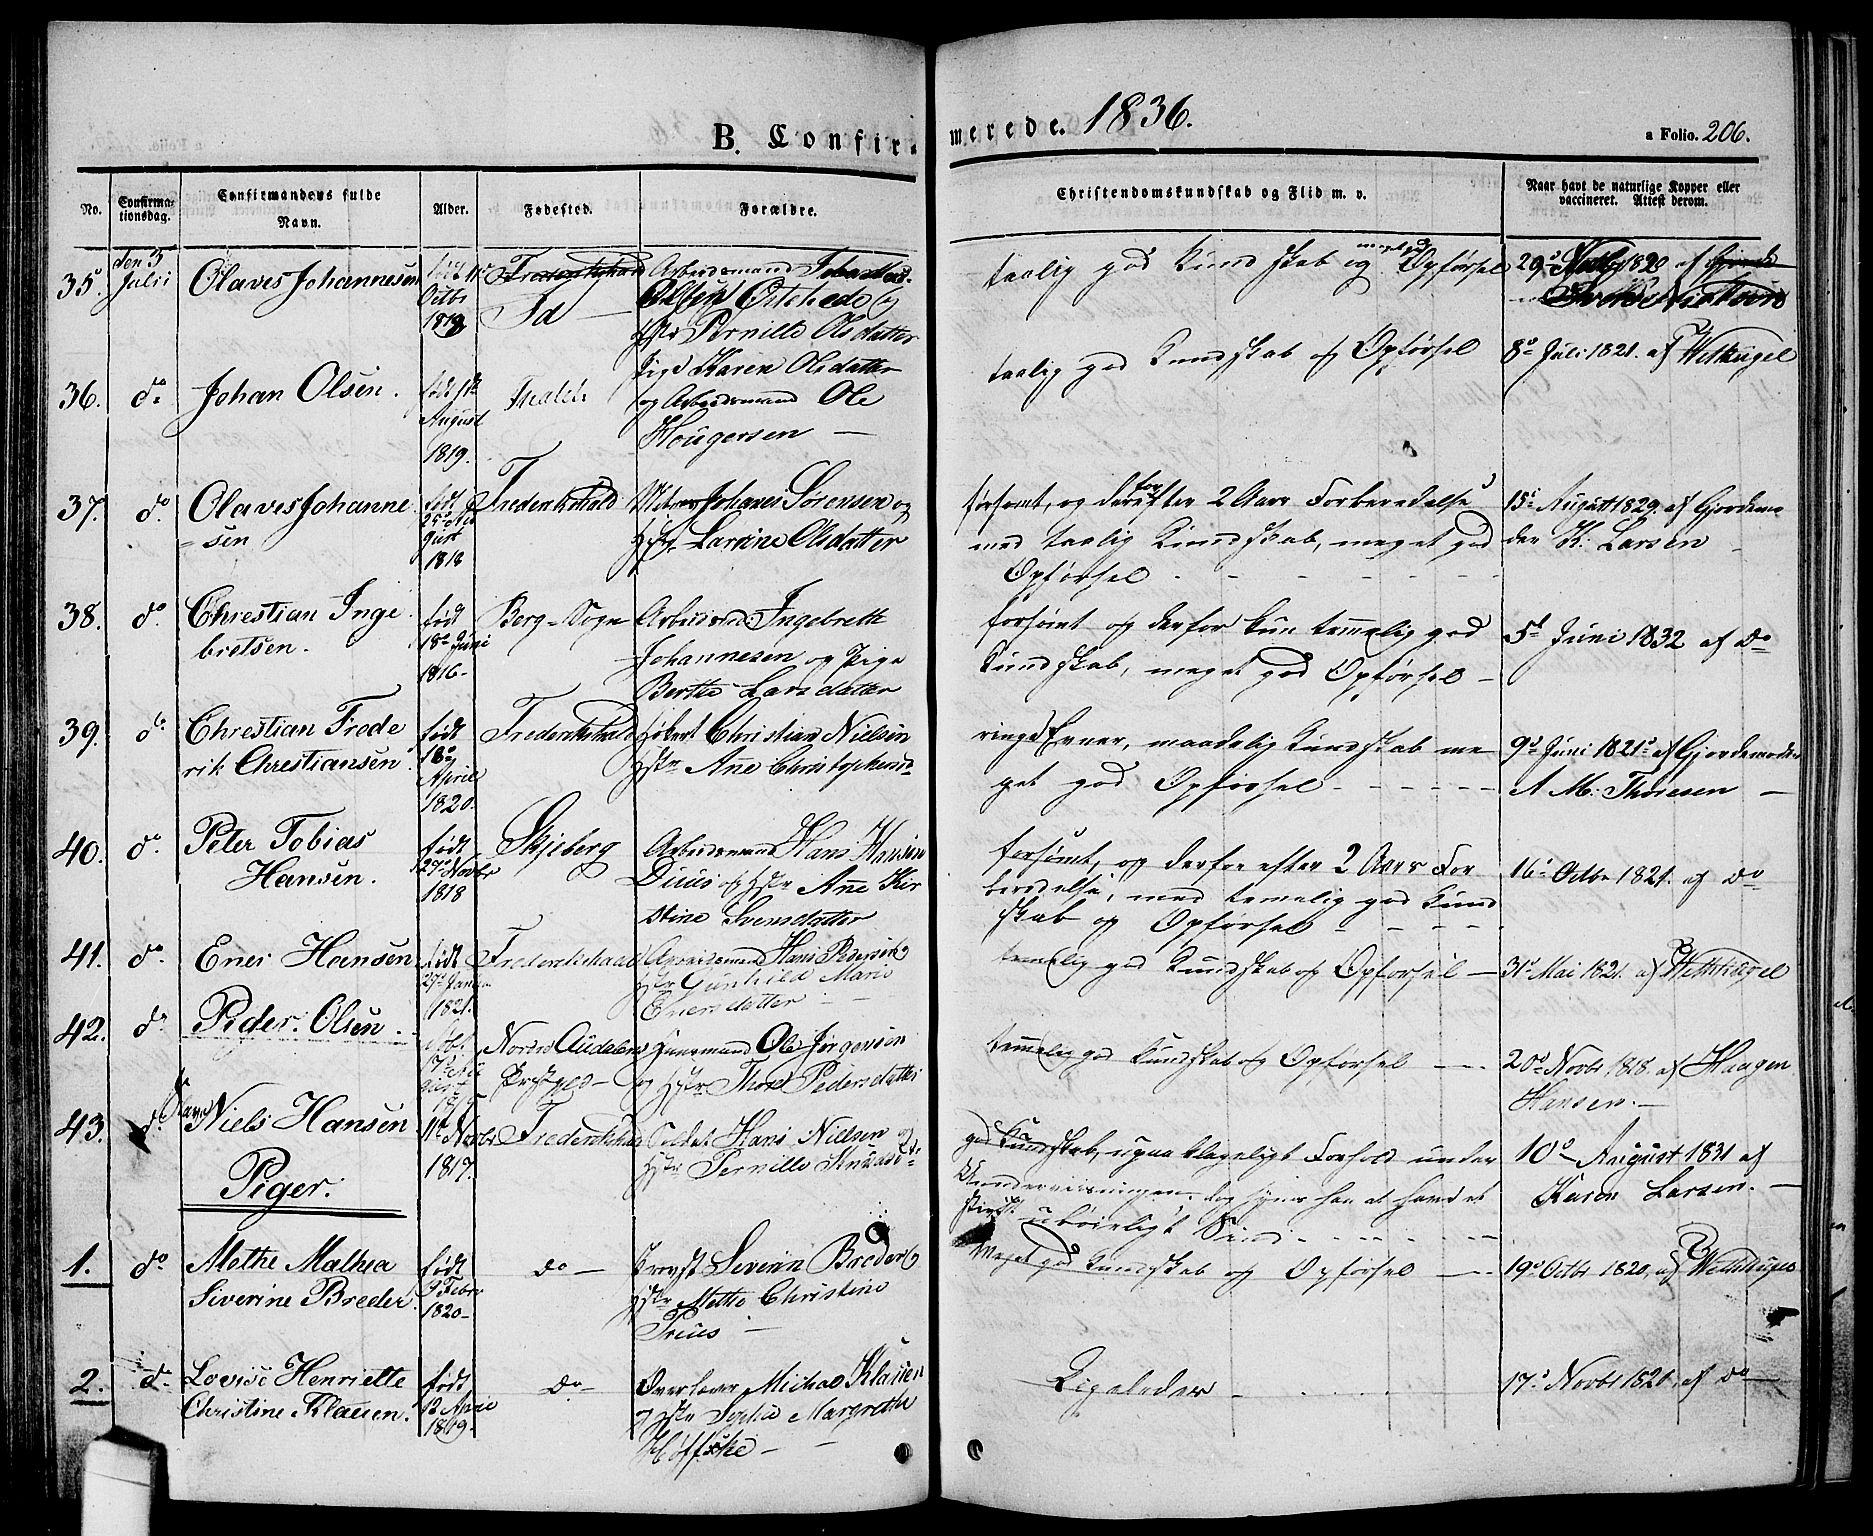 B. Confir-
merede. 1836.
a Folio. 206.
No.
Confirma-
tionsdag.
Confirmandens fulde
Navn.
Alder.
Fødested.
Forældre.
Christendomskundskab og Flid m. v.
Naar havt de naturlige Kopper eller
vaccineret. Attest derom.
35. den 3 Juli Olaves Johannesen
Octbr
Id
Arbeidsmand
og
Hstr Pernille Olsdatter
taalig god Kundskab og meget god Opførsel
29de 1820 af
36. do Johan Olsen.
August
1819.
Pige Karen Olsdatter
og Arbeidsmand Ole
Hougersen —
taalig god Kundskab og Opførsel
8de Juli 1821. af Wetkugel
37. do Olaves Johanne
sen
født
25de Au
gust
1818
Frederikshald
Johanes Sørensen og
Hstr Larine Olsdatter
forsømt, og derfor efter 2 Aars Forberedelse
med taalig Kundskab, meget god
Opførsel - - - - -
15de August 1829. af Gjordemo
der K. Larsen
38. do Chrestian Inge
bretsen.
født
18de Juni
1816-
Berg-Sogn
Arbeidsmd: Ingebreth
Johannesen og Pige
Berthe Larsdatter
forsømt og derfor kun temelig god
Kundskab, meget god Opførsel -
5te Juni 1832 af do
39. do Chrestian Frede
rik Chrestiansen.
født
18de
April
1820.
Frederikshald
Christian Nielsen
Hstr Ane Christophersd-
ringe Evner, maadelig Kundskab me
get god Opførsel - - - - -
9de Juni 1821 af Gjordemoder
A. M. Thoresen —
40. do Peter Tobias
Hansen.
født
27de Novbr
1818
Skjeberg
Arbeidsmand Hans Hansen
Duus og Hstr Ane Kir
stine Svensdatter
forsømt, og derfor efter 2 Aars For
beredelse, med temelig god Kund
skab og Opførsel - - - -
16de Octbr 1821. af do
41. do Ener Hansen
født
27de Januar
1821.
Frederikshald
Arbeidsmand Hans Pedersen
Hstr Gunhild Marie
Enersdatter
temelig god Kundskab og Opførsel —
31te Mai 1821. af Wetkugel
42. do Peder Olsen.
født
17de Au
gust
Nordre Audalens
Præstgd-
Huusmand Ole Jørgensen
og Hstr Thore Pedersdatter
temelig god Kundskab og Opførsel —
20de Novbr 1818. af Haagen
Hansen. —
43. do Slave Niels Hansen
11te Novbr
1817.
Frederikshald
Soldat Hans Nielsen og
Hstr Pernille Knudsd-
god Kundskab, upaaklageligt Forhold under
Underviisningen, dog synes han at have et
stivt ubøieligt Sind - - - - -
10de August 1831 af
Karen Larsen. —
Piger.
1. do Methe Mathea
Siverine Breder
født
Febr
1820-
do —
Severin Breder
Hstr Mette Christine
Preus —
Meget god Kundskab og Opførsel —
19de Octbr 1820, af Wetkugel
2. do Lovise Henriette
Christine Klausen.
født
13 April
1819.
do -
Michael Klausen
og Hstr Sophie Margrethe
Høffske -
Ligeledes
17de Novbr 1821, af do